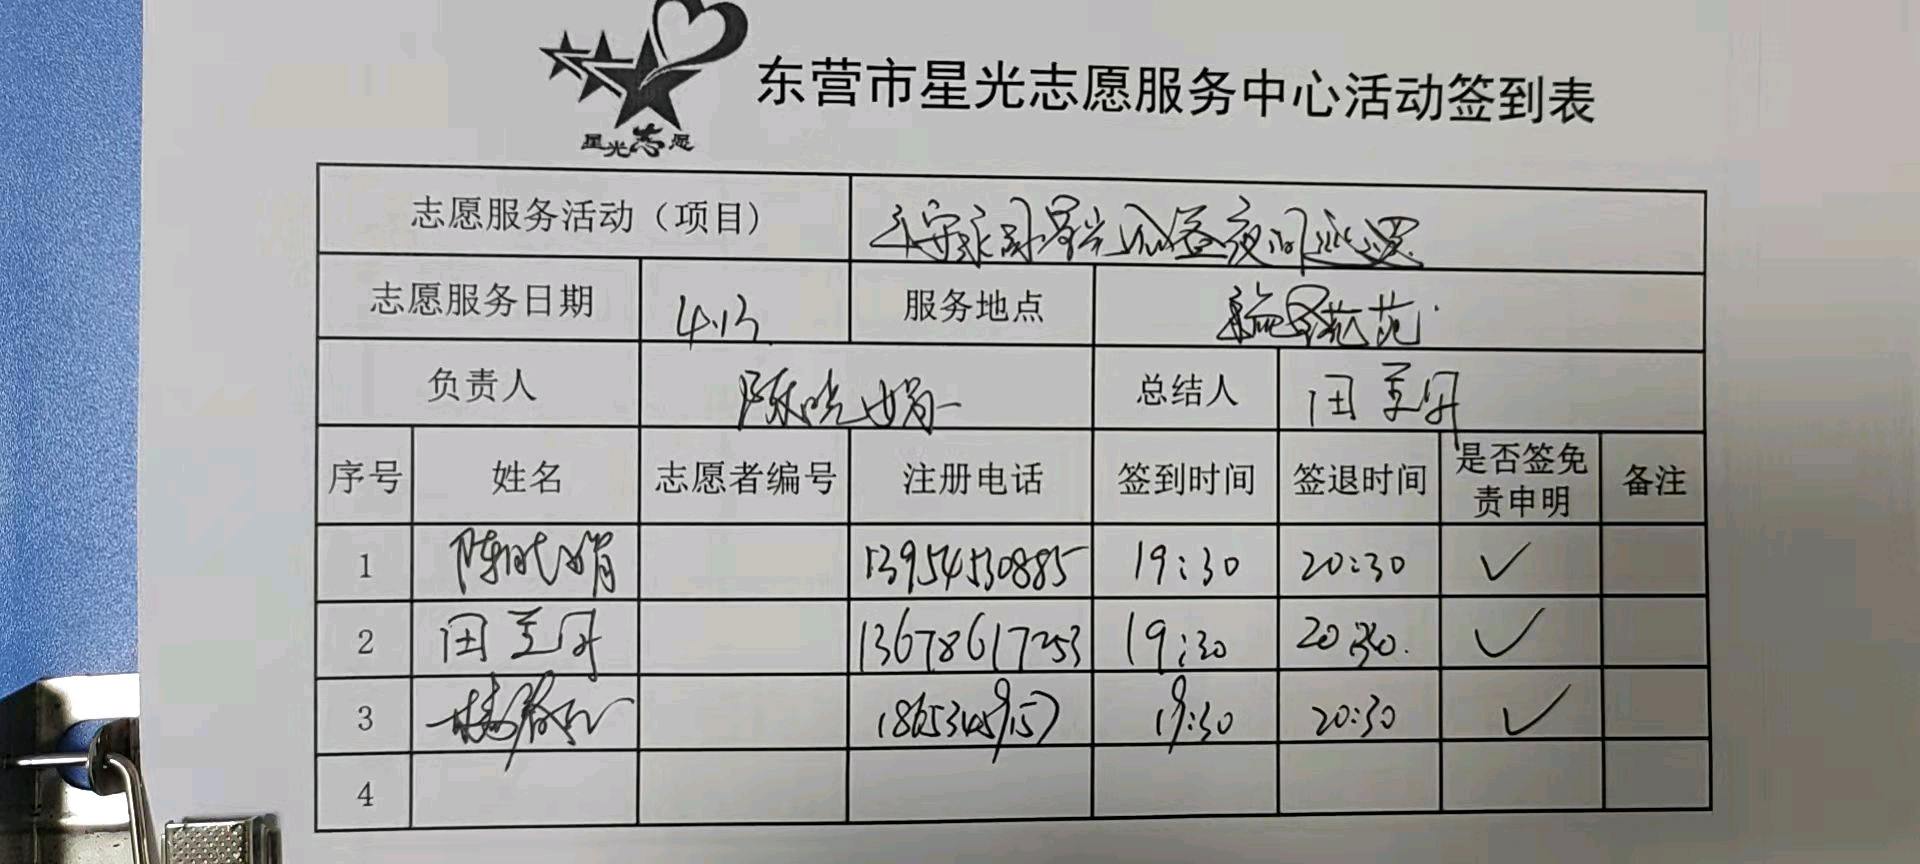 星光志愿
东营市星光志愿服务中心活动签到表
志愿服务活动（项目）
志愿服务日期 4.13 服务地点
负责人 陈晓娟 总结人 田芝丹
序号 姓名 志愿者编号 注册电话 签到时间 签退时间 是否签免责申明 备注
1 陈晓娟 13954530885 19:30 20:30 ✓
2 田芝丹 13678617253 19:30 20:30. ✓
3 18653459157 19:30 20:30 ✓
4